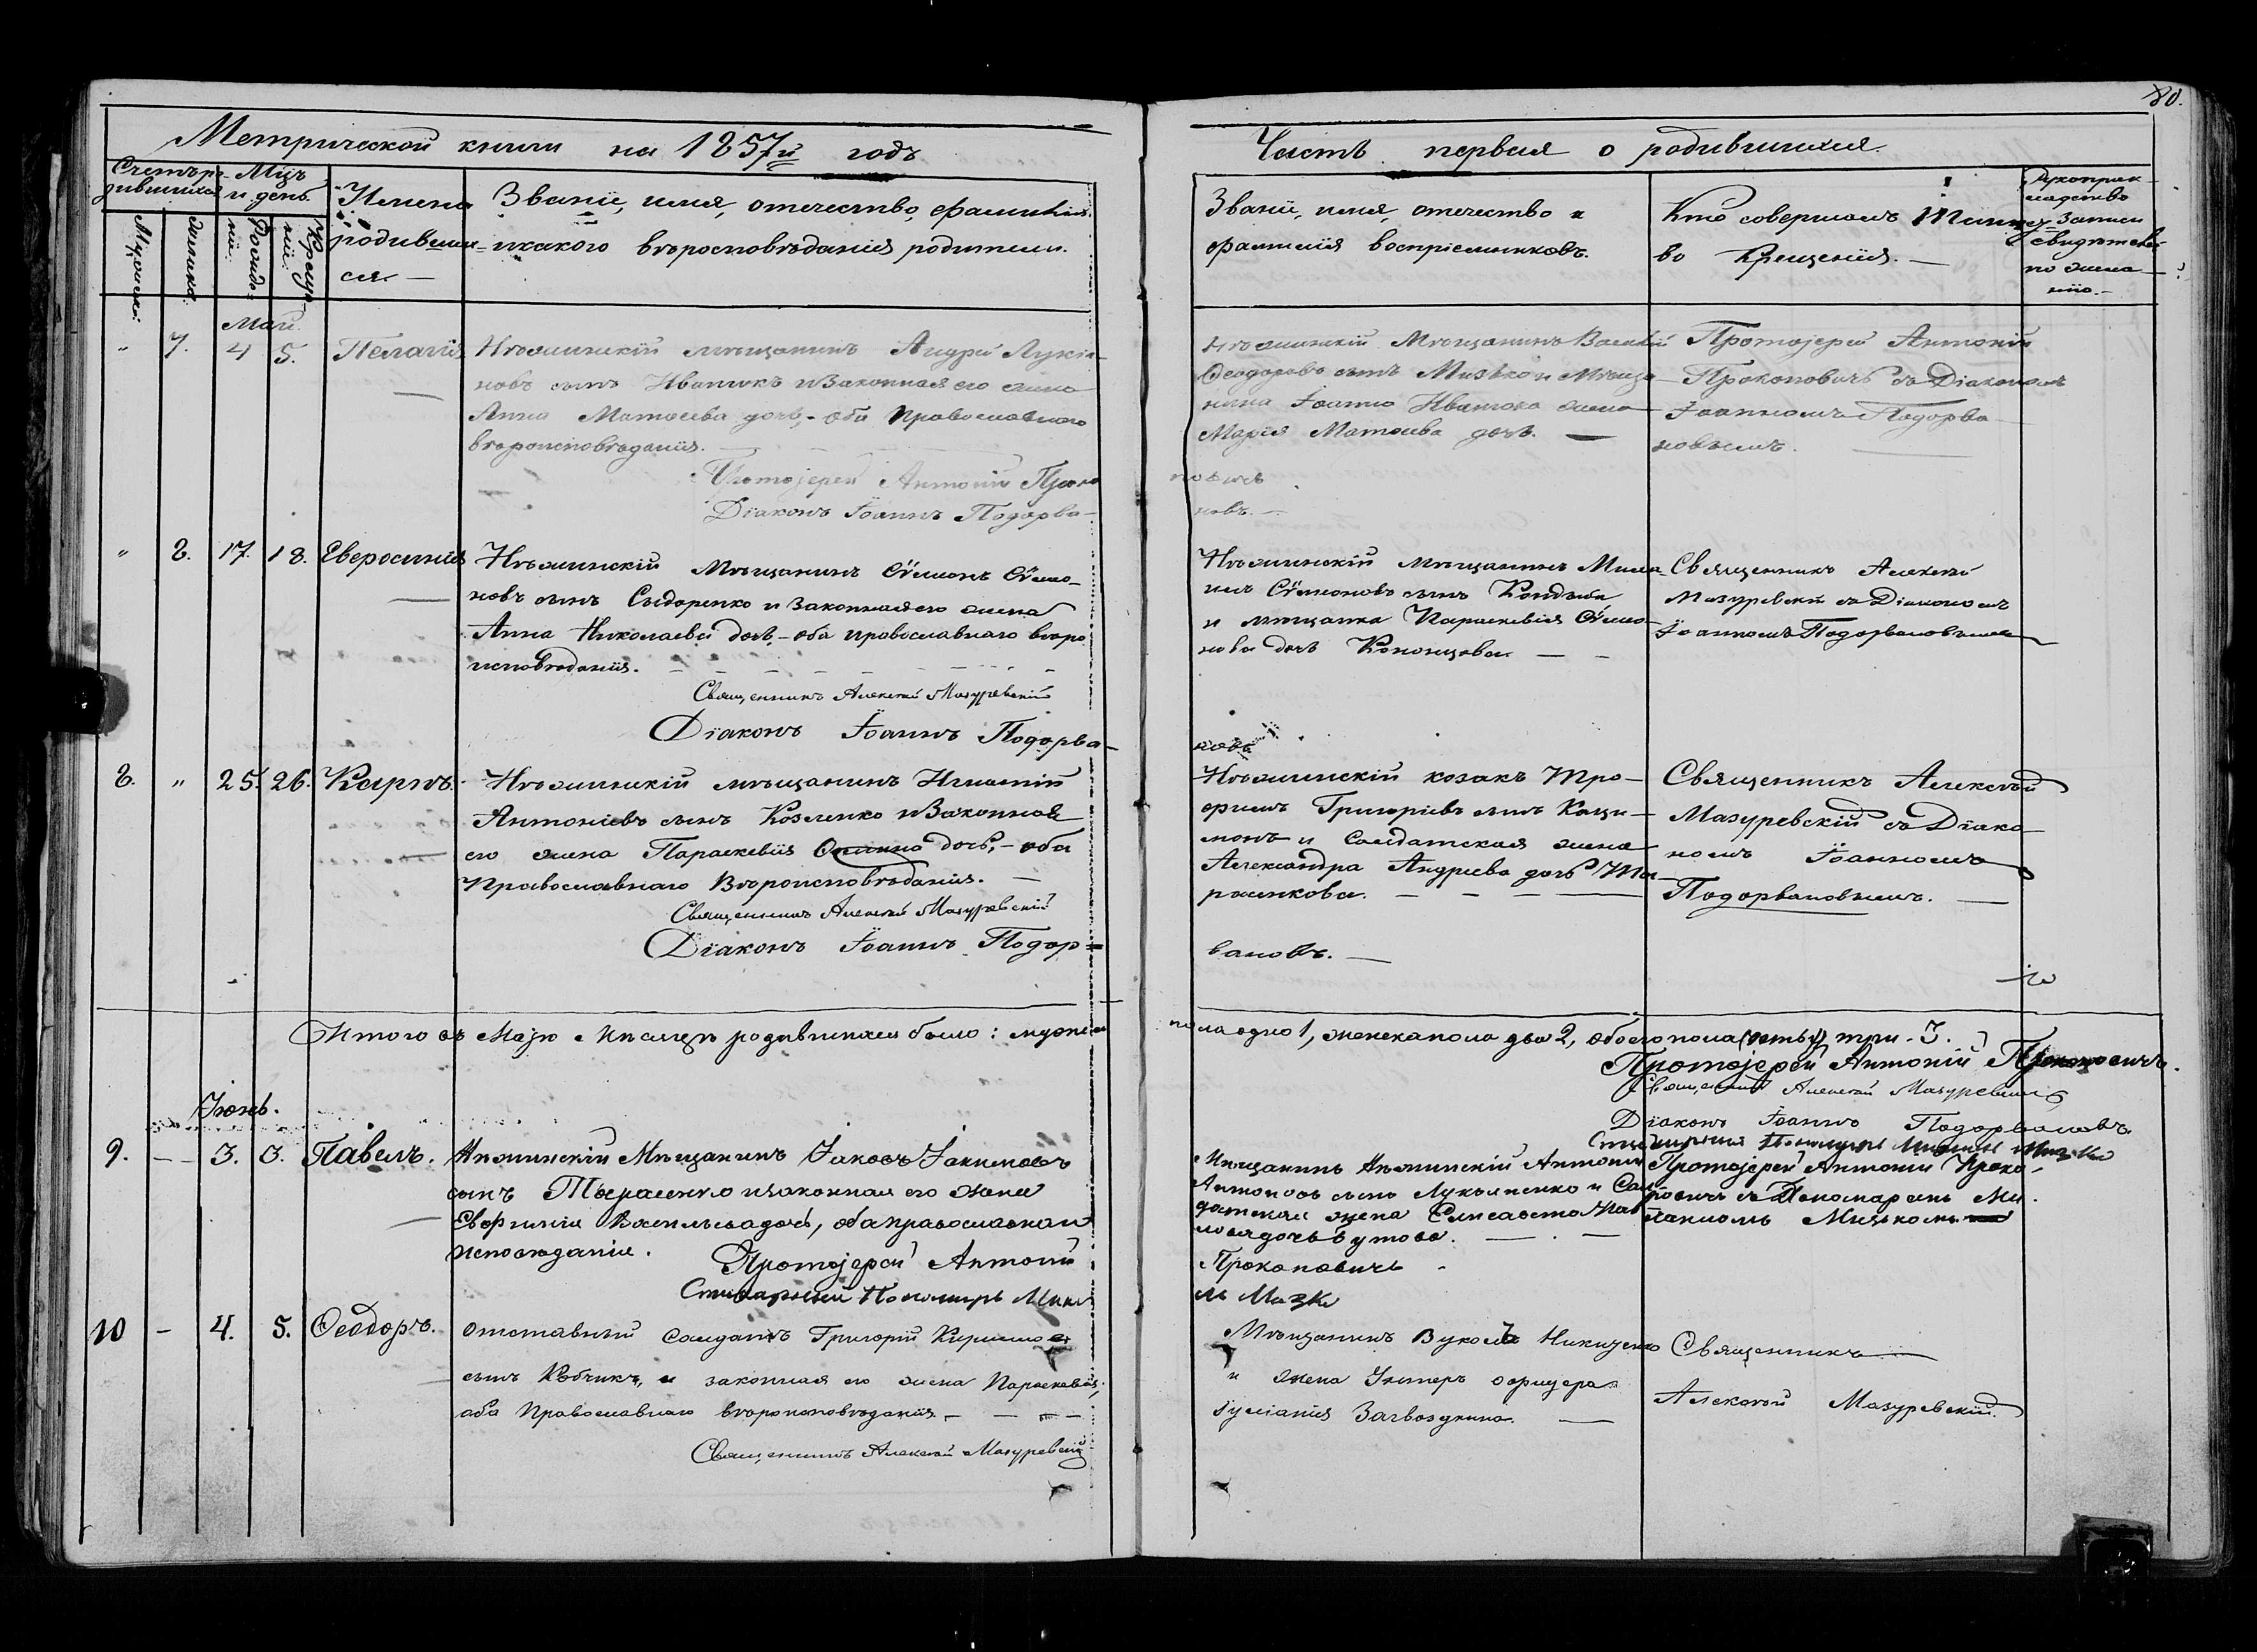 80.
Метрической книги на 1857й годъ
Часть первая о родившихся.
Счетъ ро-
дившихся
Мцъ
и день.
Мужеска.
Женска.
Рожде-
нія.
Креще-
нія.
Имена
родивши-
ся. —
Званіе, имя, отечество, фамилія
и какого вѣроисповѣданія родители.
Званіе, имя, отечество и
фамилія воспріемниковъ.
Кто совершалъ Таин-
во Крещенія. —
Рукоприк-
ладство
записи
по жела-
нію. —
Май.
" 7. 4 5. Пелагія
Нѣжинскій мѣщанинъ Андрей Лукія-
новъ сынъ Иваникъ и законная его жена
Анна Матѳеева дочь, - оба Православнаго
вѣроисповѣданія.
Протоіерей Антоній Проко
Діаконъ Іоаннъ Подорва-
Нѣжинскій Мѣщанинъ Василій
Ѳеодоровъ сынъ Мишко и Мѣща-
нина Іоанна жена
Марія Матѳеева дочь. —
повичъ
новъ. —
Протоіерей Антоній
Прокоповичъ съ Діакономъ
Іоанномъ Подорва-
новымъ.
" 8. 17. 18. Евфросинія
Нѣжинскій Мѣщанинъ Сѵмеонъ Сѵмео-
новъ сынъ Сидоренко и законная его жена
Анна Николаева дочь, - оба православнаго вѣро-
исповѣданія.
Священникъ Алексѣй Мазуревскій
Діаконъ Іоаннъ Подорва-
Нѣжинскій мѣщанинъ Миха-
илъ Сѵмеоновъ сынъ
и мѣщанка Параскевія Сѵмео-
нова дочь Кононцова. —
новъ
Священникъ Алексѣй
Мазуревскій съ Діакономъ
Іоанномъ Подорвановымъ
8. " 25. 26. Карпъ.
Нѣжинскій мѣщанинъ Игнатій
Антоніевъ сынъ Козленко и Законная
его жена Параскевія дочь, - оба
Православнаго Вѣроисповѣданія. —
Священникъ Алексѣй Мазуревскій
Діаконъ Іоаннъ Подор-
Нѣжинскій козакъ Тро-
фимъ Григоріевъ сынъ
и Солдатская жена
Александра Андреева дочь Та-
расенкова.
вановъ. —
Священникъ Алексѣй
Мазуревскій съ Діако-
номъ Іоанномъ
Подорвановымъ. —
Итого въ Маѣ мѣсяцѣ родившихся было: мужеска
пола одно 1, женска пола два 2, обоего пола три - 3.
Протоіерей Антоній Прокоповичъ.
Священникъ Алексѣй Мазуревскій
Діаконъ Іоаннъ Подорвановъ
Іюнь.
9. — 3. 3. Павелъ.
Нѣжинскій Мѣщанинъ Іаковъ Іакимовъ
сынъ Тарасенко и законная его жена
Васильева дочь, оба православнаго
исповѣданія.
Протоіерей Антоній
Пономарь
Мѣщанинъ Нѣжинскій Антоній
Антоновъ сынъ Лукьяненко и Сол-
датская жена Елисавета
дочь Бутова. —
Прокоповичъ
Протоіерей Антоній Проко-
повичъ съ Пономаремъ Ми-
хаиломъ
10 — 4. 5. Ѳеодоръ.
Отставный Солдатъ Григорій Кириловъ
сынъ и законная его жена Параскевія,
оба Православнаго вѣроисповѣданія. —
Священникъ Алексѣй Мазуревскій
Мѣщанинъ Вуколъ Никиценко
и жена Унтеръ офицера
Іуліанія Загвоздкина. —
Священникъ
Алексѣй Мазуревскій.